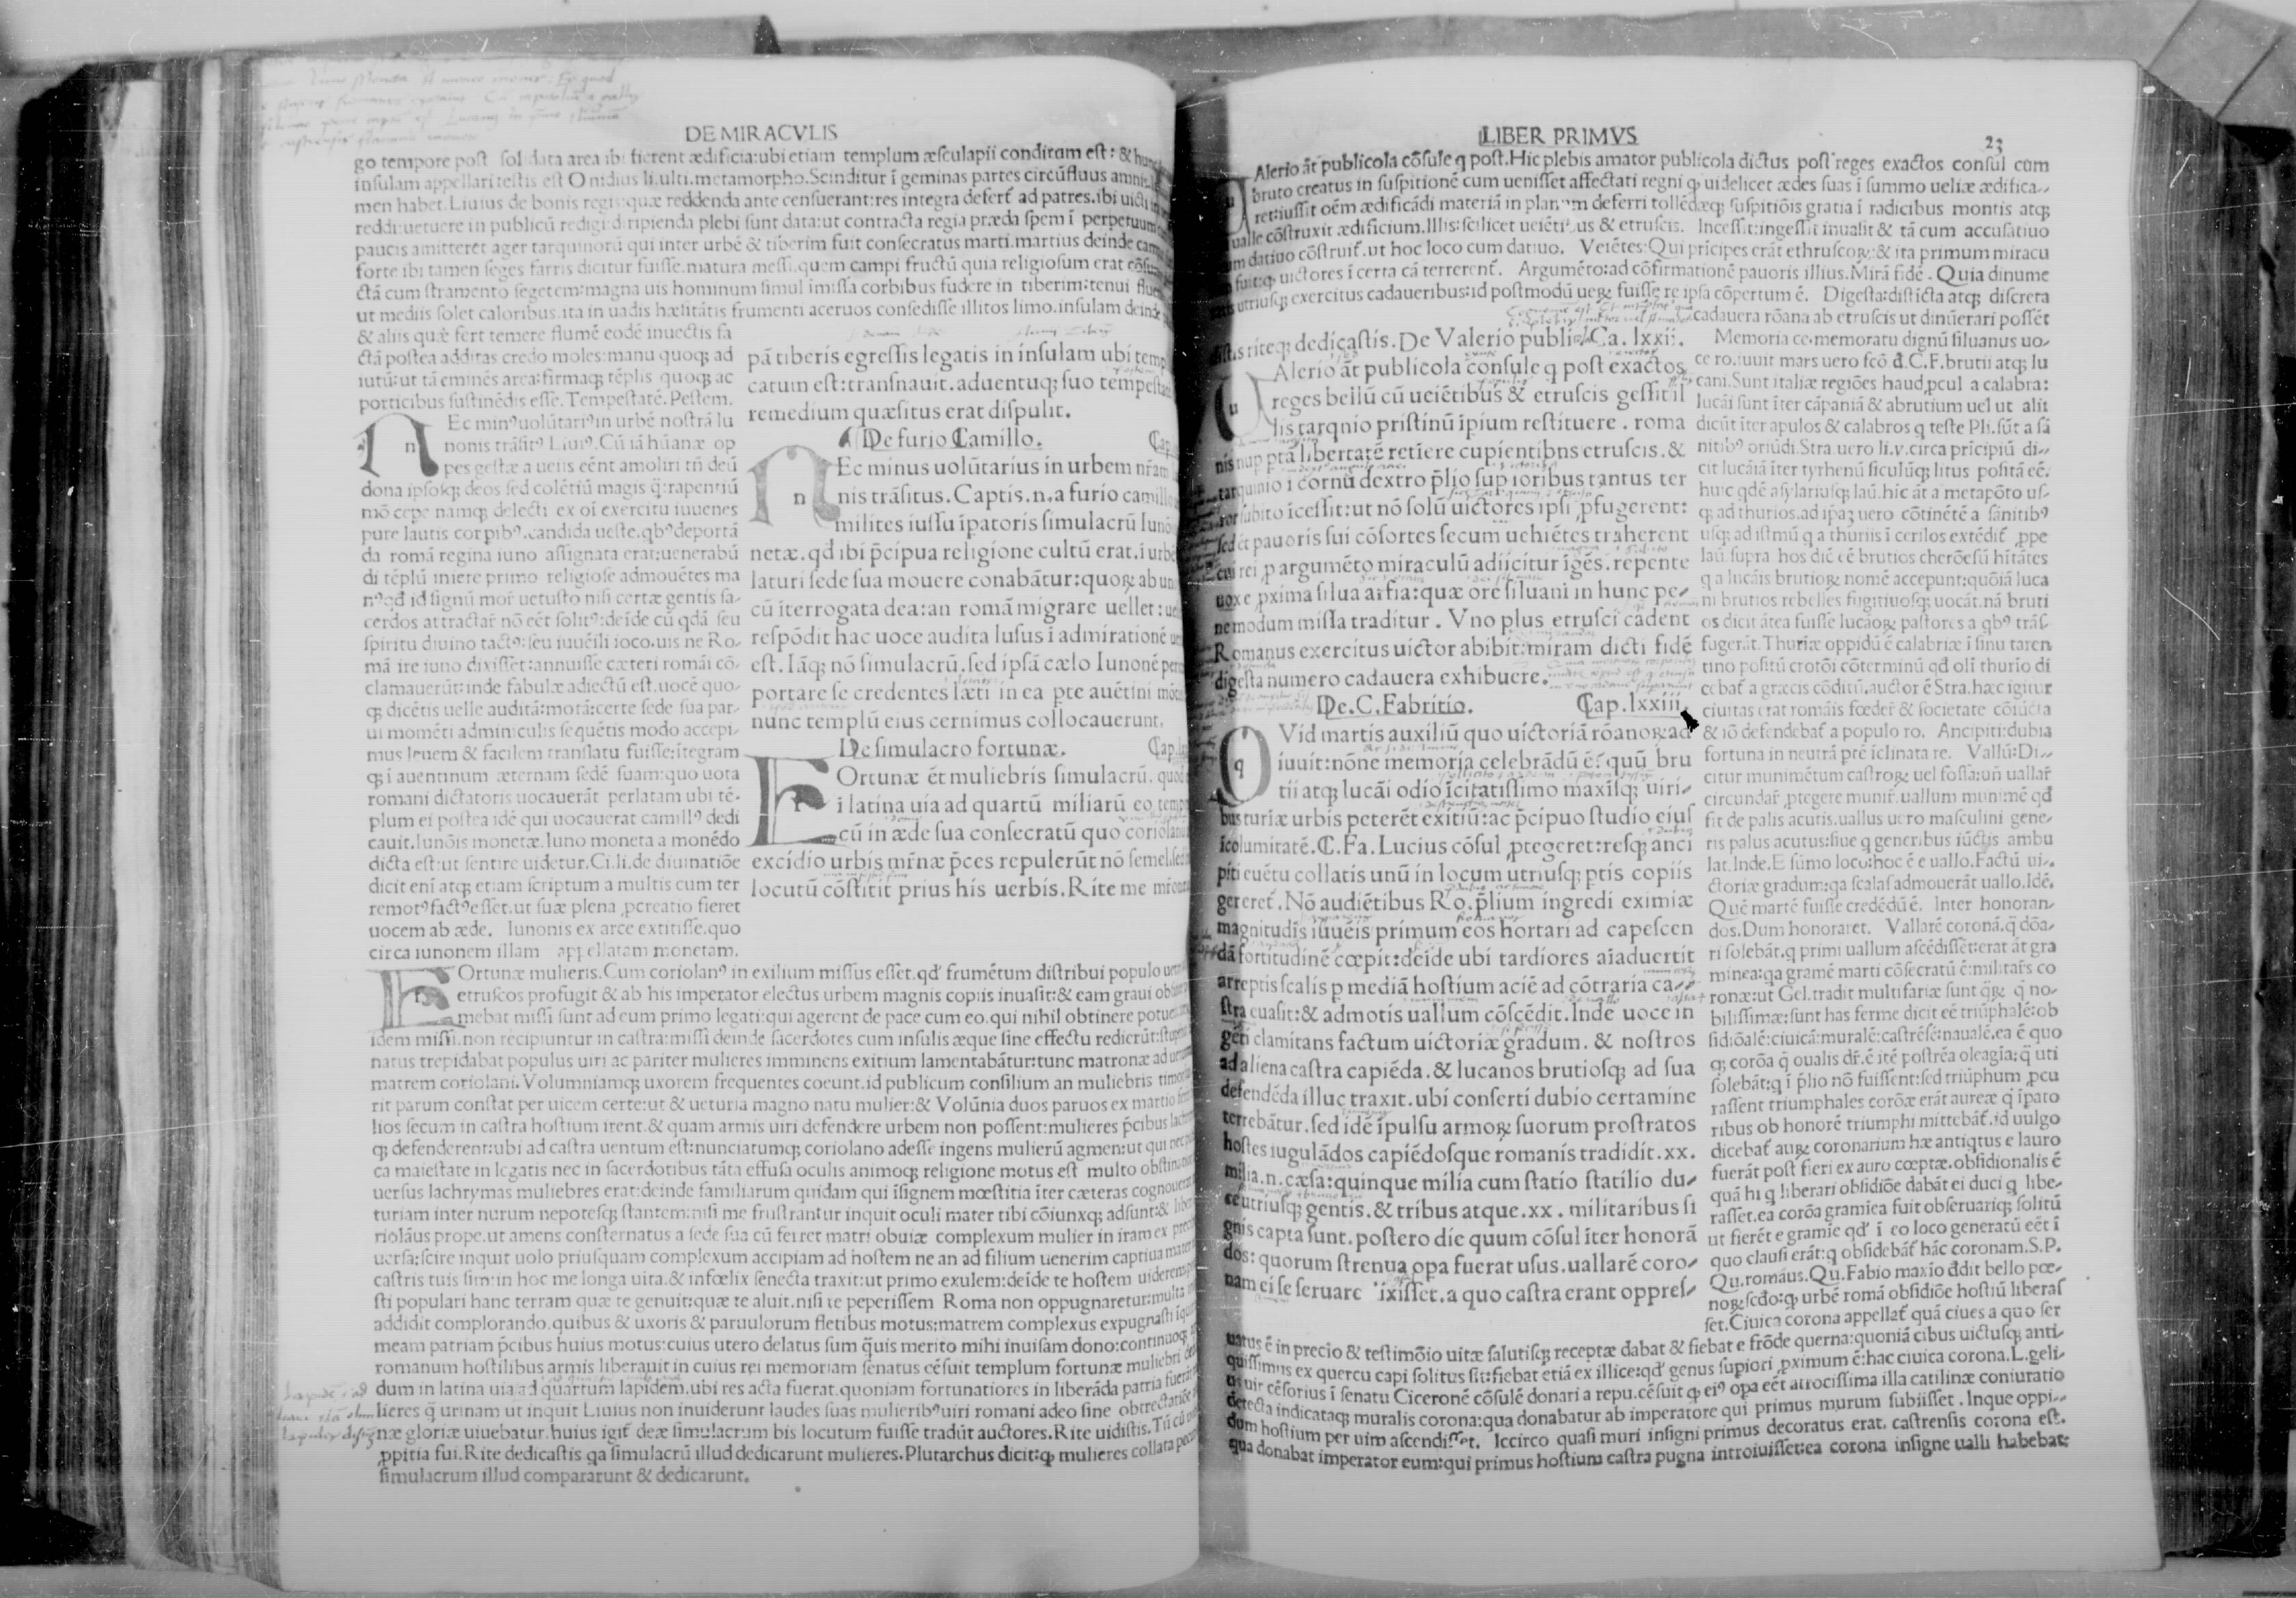 DE MIRACVLIS
go tempore post solidata area ibi fierent ædificia:ubi etiam templum æsculapii conditum est: & hunc
insulam appellari testis est Ouidius li.ulti.metamorpho.Scinditur ĩ geminas partes circũfluus amnis
men habet.Liuius de bonis regis:quæ reddenda ante censuerant:res integra defert̃ ad patres.ibi uicti
reddi:uetuere in publicũ redigi:diripienda plebi sunt data:ut contracta regia præda spem ĩ perpetuum
paucis amitteret ager tarquinorũ qui inter urbẽ & tiberim fuit consecratus marti.martius deinde
forte ibi tamen seges farris dicitur fuisse.matura messi.quem campi fructũ quia religiosum erat
ctã cum stramento segetem:magna uis hominum simul ĩmissa corbibus fudere in tiberim:tenui
ut mediis solet caloribus.ita in uadis hæsitãtis frumenti aceruos consedisse illitos limo.insulam deinde
& aliis quæ fert temere flumẽ eodẽ inuectis fa
ctã postea additas credo moles:manu quoqꝫ ad
iutũ:ut tã eminẽs area:firmaqꝫ tẽplis quoqꝫ ac
porticibus sustinẽdis esset.Tempestatẽ.Pestem.
Ec minꝰ uolũtariꝰ in urbẽ nostrã Iu
nonis trãsitꝰ Liuiꝰ.Cũ iã hũanæ op
pes gestæ a ueiis eẽnt amoliri tñ deũ
dona ipsoꝶqꝫ deos sed colẽtiũ magis q̃:rapentiũ
mõ cepe namqꝫ delecti ex oĩ exercitu iuuenes
pure lautis corpibꝰ.candida ueste.qbꝰ deportã
da romã regina iuno assignata erat:uenerabũ
di tẽplũ iniere primo religiose admouẽtes ma
nꝰ qđ id signũ mor̃ uetusto nisi certæ gentis sa-
cerdos attractar̃ nõ eẽt solitꝰ:deĩde cũ qdã seu
spiritu diuino tactꝰ:seu iuuẽili ioco.uis ne Ro-
mã ire iuno dixisset:annuisse cæteri romãi cõ-
clamauerũt:inde fabulæ adiectũ est.uocẽ quo-
qꝫ dicẽtis uelle auditã:motã:certe sede sua par-
ui momẽti adminiculis sequẽtis modo accepi-
mus leuem & facilem translatu fuisse:ĩtegram
qꝫ ĩ auentinum æternam sedẽ suam:quo uota
romani dictatoris uocauerãt perlatam ubi tẽ-
plum ei postea idẽ qui uocauerat camillꝰ dedi
cauit.Iunõis monetæ.Iuno moneta a monẽdo
dicta est:ut sentire uidetur.Ci.li.de diuinatiõe
dicit enĩ atqꝫ etiam scriptum a multis cum ter
remotꝰ factꝰ esset.ut suæ plena ꝓcreatio fieret
uocem ab æde. Iunonis ex arce extitisse.quo
circa iunonem illam appellatam monetam.
pã tiberis egressis legatis in insulam ubi
catum est:transnauit.aduentuqꝫ suo
remedium quæsitus erat dispulit.
De furio Camillo. Cap.
Ec minus uolũtarius in urbem nr̃am
nis trãsitus.Captis.n.a furio camillo
milites iussu ĩpatoris simulacrũ
netæ.qđ ibi p̃cipua religione cultũ erat.ĩ urbẽ
laturi sede sua mouere conabãtur:quoꝶ ab
cũ ĩterrogata dea:an romã migrare uellet:
respõdit hac uoce audita lusus ĩ admirationẽ
est.Iãqꝫ nõ simulacrũ.sed ipsã cælo Iunonẽ
portare se credentes læti in ea pte auẽtini
nunc templũ eius cernimus collocauerunt.
De simulacro fortunæ. Cap.
Ortunæ ẽt muliebris simulacrũ. quod
ĩ latina uia ad quartũ miliarũ eo
cũ in æde sua consecratũ quo coriolanũ
excidio urbis mr̃næ p̃ces repulerũt nõ semel.sed
locutũ cõstitit prius his uerbis.Rite me
Ortunæ mulieris.Cum coriolanꝰ in exilium missus esset.qđ frumẽtum distribui populo
etruscos profugit & ab his imperator electus urbem magnis copiis inuasit:& eam graui
mebat missi sunt ad eum primo legati:qui agerent de pace cum eo.qui nihil obtinere
idem missi.non recipiuntur in castra:missi deinde sacerdotes cum insulis æque sine effectu redierũt:
natus trepidabat populus uiri ac pariter mulieres imminens exitium lamentabãtur:tunc matronæ ad
matrem coriolani.Volumniamqꝫ uxorem frequentes coeunt.id publicum consilium an muliebris
rit parum constat per uicem certe:ut & ueturia magno natu mulier:& Volũnia duos paruos ex martio
lios secum in castra hostium irent.& quam armis uiri defendere urbem non possent:mulieres p̃cibus
qꝫ defenderent:ubi ad castra uentum est:nunciatumqꝫ coriolano adesse ingens mulierũ agmen:ut qui
ca maiestate in legatis nec in sacerdotibus tãta effusa oculis animoqꝫ religione motus est multo
uersus lachrymas muliebres erat:deinde familiarum quidam qui ĩsignem mœstitia ĩter cæteras
turiam inter nurum nepotesqꝫ stantem:nisi me frustrantur inquit oculi mater tibi cõiunxqꝫ adsunt:&
riolãus prope.ut amens consternatus a sede sua cũ ferret matri obuiæ complexum mulier in iram ex
uersa:scire inquit uolo priusquam complexum accipiam ad hostem ne an ad filium uenerim captiua
castris tuis sim:in hoc me longa uita.& infœlix senecta traxit:ut primo exulem:deĩde te hostem
sti populari hanc terram quæ te genuit:quæ te aluit.nisi te peperissem Roma non oppugnaretur:
addidit complorando.quibus & uxoris & paruulorum fletibus motus:matrem complexus expugnasti
meam patriam p̃cibus huius motus:cuius utero delatus sum q̃uis merito mihi inuisam dono:
romanum hostilibus armis liberauit in cuius rei memoriam senatus cẽsuit templum fortunæ muliebri
dum in latina uia ad quartum lapidem.ubi res acta fuerat.quoniam fortunatiores in liberãda patria
lieres q̃ urinam ut inquit Liuius non inuiderunt laudes suas mulieribꝰ uiri romani adeo sine
næ gloriæ uiuebatur.huius igit̃ deæ simulacrum bis locutum fuisse tradũt auctores.Rite uidistis.
ꝓpitia fui.Rite dedicastis qa simulacrũ illud dedicarunt mulieres.Plutarchus dicit:qꝫ mulieres collata
simulacrum illud compararunt & dedicarunt.
LIBER PRIMVS 23
Alerio ãt publicola cõsule q post.Hic plebis amator publicola dictus post reges exactos consul cum
bruto creatus in suspitionẽ cum uenisset affectati regni qꝫ uidelicet ædes suas ĩ summo ueliæ ædifica-
ret:iussit oẽm ædificãdi materiã in planum deferri tollẽdæqꝫ suspitiõis gratia ĩ radicibus montis atqꝫ
ualle cõstruxit ædificium.Illis:scilicet ueiẽtibus & etruscis. Incessit:ingessit inualit & tã cum accusatiuo
datiuo cõstruit̃.ut hoc loco cum datiuo. Veiẽtes:Qui prĩcipes erãt ethruscoꝶ:& ita primum miracu
fuit:qꝫ uictores ĩ certa cã terrerent̃. Argumẽto:ad cõfirmationẽ pauoris illius.Mirã fidẽ. Quia dinume
utriusqꝫ exercitus cadaueribus:id postmodũ ueꝶ fuisse re ipsa cõpertum ẽ. Digesta:disticta atqꝫ discreta
cadauera rõana ab etruscis ut dinũerari possẽt
riteqꝫ dedicastis.De Valerio publi Ca. lxxii.
Alerio ãt publicola consule q post exactos
reges bellũ cũ ueiẽtibus & etruscis gessit il
lis tarqnio pristinũ ĩpium restituere. roma
nis nup ptã libertatẽ retĩere cupientibns etruscis.&
tarquinio ĩ cornu dextro p̃lio supioribus tantus ter
ror subito ĩcessit:ut nõ solũ uictores ipsi ꝓfugerent:
sed et pauoris sui cõsortes secum uehiẽtes traherent
cui rei ꝓ argumẽto miraculũ adiicitur ĩgẽs.repente
uoxe ꝓxima silua arsia:quæ ore siluani in hunc pe-
ne modum missa traditur. Vno plus etrusci cadent
Romanus exercitus uictor abibit:miram dicti fidẽ
digesta numero cadauera exhibuere.
De.C.Fabritio. Cap.lxxiii.
Vid martis auxiliũ quo uictoriã rõanoꝶ ad
iuuit:nõne memoria celebrãdũ ẽ? quũ bru
tii atqꝫ lucãi odio ĩcitatissimo maxisqꝫ uiri-
bus turiæ urbis peterẽt exitiũ:ac p̃cipuo studio eius
ĩcolumitatẽ.C.Fa.Lucius cõsul ꝓtegeret:resqꝫ anci
piti euẽtu collatis unũ in locum utriusqꝫ ptis copiis
gereret̃.Nõ audiẽtibus Ro.p̃lium ingredi eximiæ
magnitudĩs iuuẽis primum eos hortari ad capescen
dã fortitudinẽ cœpit:deĩde ubi tardiores aĩaduertit
arreptis scalis p mediã hostium aciẽ ad cõtraria ca-
stra euasit:& admotis uallum cõscẽdit.Inde uoce in
genti clamitans factum uictoriæ gradum. & nostros
ad aliena castra capiẽda.& lucanos brutiosqꝫ ad sua
defendẽda illuc traxit.ubi conserti dubio certamine
terrebãtur.sed idẽ ĩpulsu armoꝶ suorum prostratos
hostes iugulãdos capiẽdosque romanis tradidit.xx.
milia.n.cæsa:quinque milia cum statio statilio du-
ce utriusqꝫ gentis.& tribus atque.xx. militaribus si
gnis capta sunt.postero die quum cõsul ĩter honorã
dos: quorum strenua opa fuerat usus.uallarẽ coro-
nam ei se seruare ixisset.a quo castra erant oppres-
Memoria ce.memoratu dignũ siluanus uo-
ce ro.iuuit mars uero fcõ đ.C.F.brutii atqꝫ lu
cani.Sunt italiæ regiões haud ꝓcul a calabra:
lucãi sunt ĩter cãpaniã & abrutium uel ut alii
dicũt ĩter apulos & calabros q teste Pli.sũt a sã
nitibꝰ oriũdi.Stra.uero li.v.circa prĩcipiũ di-
cit lucãiã ĩter tyrhenũ siculũqꝫ litus positã eẽ.
huic qđẽ asylariusqꝫ laũ.hic ãt a metapõto us-
qꝫ ad thurios.ad ip̃aꝫ uero cõtinẽtẽ a sãnitibꝰ
usqꝫ ad istmũ q a thuriis ĩ cerilos extẽdit̃ ꝓpe
laũ.supra hos diẽ eẽ brutios cherõesũ hĩtãtes
q a lucãis brutioꝶ nomẽ accepunt:quõiã luca
ni brutios rebelles fugitiuosqꝫ uocãt.nã bruti
os dicit ãtea fuisse lucãoꝶ pastores a qbꝰ trãs-
fugerãt.Thuriæ oppidũ ẽ calabriæ ĩ sinu taren
tino positũ crotõi cõterminũ qđ oli thurio di
cebat̃ a græcis cõditũ.auctor ẽ Stra.hæc igitur
ciuitas erat romãis fœder̃ & societate cõiũcta
& iõ defendebat̃ a populo ro. Ancipiti:dubia
fortuna in neutrã ptẽ ĩclinata re. Vallũ:Di-
citur munimẽtum castroꝶ uel fossa:uñ uallar̃
circundar̃ ꝓtegere munir̃.uallum munimẽ qđ
fit de palis acutis.uallus uero masculini gene-
ris palus acutus:siue q generibus iũctis ambu
lat.Inde.E sũmo loco:hoc ẽ e uallo.Factũ ui-
ctoriæ gradum:qa scalas admouerãt uallo.Idẽ.
Quẽ martẽ fuisse credẽdũ ẽ. Inter honoran-
dos.Dum honoraret. Vallarẽ coronã.q̃ dõa-
ri solebãt.q primi uallum ascẽdissẽt:erat ãt gra
minea:qa gramẽ marti cõsecratũ ẽ:militar̃s co
ronæ:ut Gel.tradit multifariæ sunt q̃ꝶ q̃ no-
bilissimæ:sunt has ferme dicit eẽ triũphalẽ:ob
sidiõalẽ:ciuicã:muralẽ:castrẽsẽ:naualẽ.ea ẽ quo
qꝫ corõa q̃ oualis dr̃.ẽ itẽ postrẽa oleagia:q̃ uti
solebãt:q ĩ p̃lio nõ fuissent:sed triũphum ꝓcu
rassent triumphales corõæ erãt aureæ q̃ ĩpato
ribus ob honorẽ triumphi mittebãt̃.id uulgo
dicebat̃ auꝶ coronarium hæ antiqtus e lauro
fuerãt post fieri ex auro cœptæ.obsidionalis ẽ
quã hi q liberari obsidiõe dabãt ei duci q libe-
rasset.ea corõa gramiea fuit obseruariqꝫ solitũ
ut fierẽt e gramĩe qđ ĩ eo loco generatũ eẽt ĩ
quo clausi erãt:q obsidebãt̃ hãc coronam.S.P.
Qu.romãus.Qu.Fabio maxĩo đdit bello pœ-
noꝶ scđo:qꝫ urbẽ romã obsidiõe hostiũ liberas
set.Ciuica corona appellat̃ quã ciues a quo ser
uatus ẽ in precio & testimõio uitæ salutisqꝫ receptæ dabat & fiebat e frõde querna:quoniã cibus uictusqꝫ anti-
quissimus ex quercu capi solitus sit:fiebat etiã ex illice:qđ genus supiori ꝓximum ẽ:hac ciuica corona.L.geli-
us uir cẽsorius ĩ senatu Ciceronẽ cõsulẽ donari a repu.cẽsuit qꝫ eiꝰ opa eẽt atrocissima illa catilinæ coniuratio
detecta indicataqꝫ muralis corona:qua donabatur ab imperatore qui primus murum subiisset. Inque oppi-
dum hostium per uim ascendisset. Iccirco quasi muri insigni primus decoratus erat. castrensis corona est.
qua donabat imperator eum:qui primus hostium castra pugna introiuisset:ea corona insigne ualli habebat: